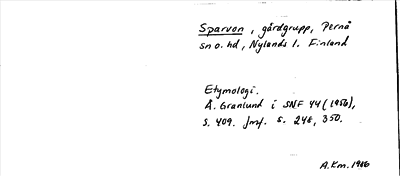 Sparvon, gårdgrupp, Pernå
sn o. hd, Nylands l. Finland
Etymologi.
Å. Granlund i SNF 44 (1956),
s. 409. Jmf. s. 248, 350.
A.Km. 1986